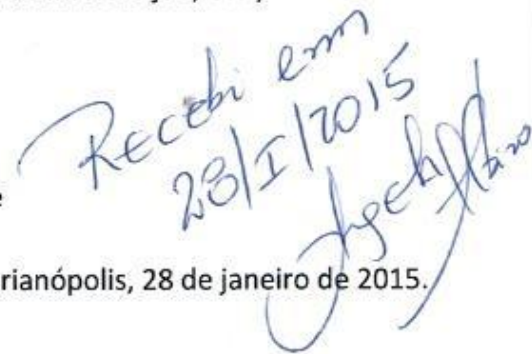 Recebi em
28/I/2015
e
rianópolis, 28 de janeiro de 2015.